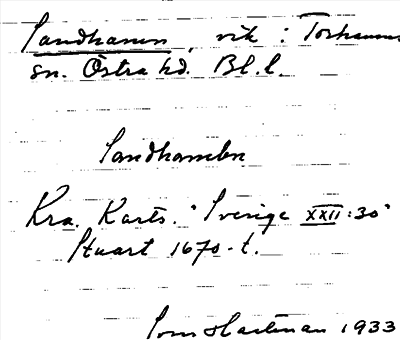 Sandhamn, vik i Torhamns
sn. Östra hd. Bl.l.
Sandhambn
Kra. Kartv. "Sverige XXII:30"
Stuart 1670-t.
Hartman 1933